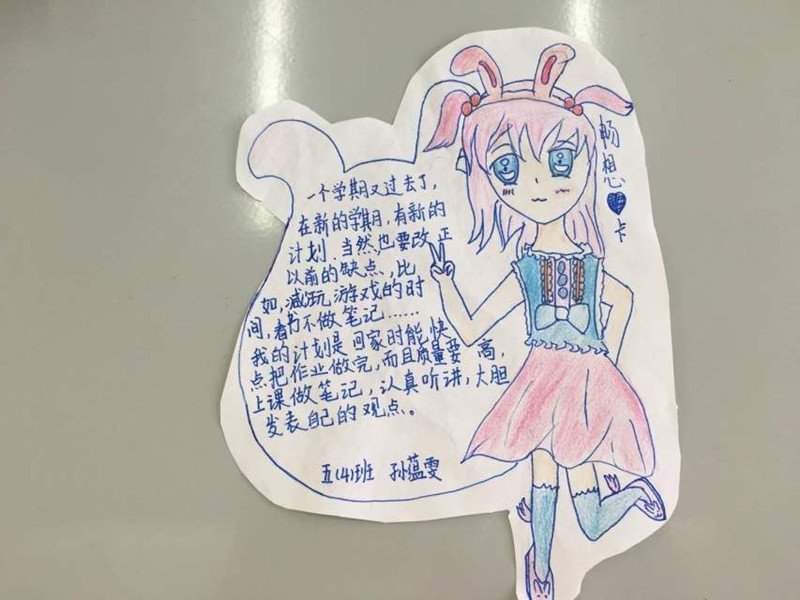 畅想♥卡
一个学期又过去了,
在新的学期,有新的
计划.当然,也要改正
以前的缺点,比
如,减玩游戏的时
间,看书不做笔记……
我的计划是回家时能快
点把作业做完,而且质量要高,
上课做笔记,认真听讲,大胆
发表自己的观点。
五(4)班 孙蕴雯